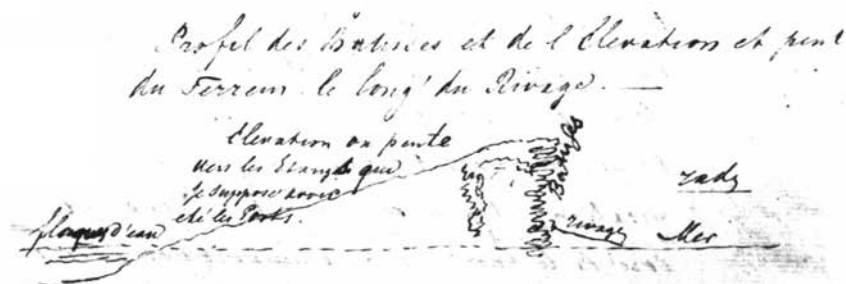 Profil des Batises et de l'Elevation et pente
du Terrein le long du Rivage. —
Elevation ou pente
vers les Etangs que
je suppose avoir
eté les Ports.
flaques d'eau
Batises
rivage
rade
Mer